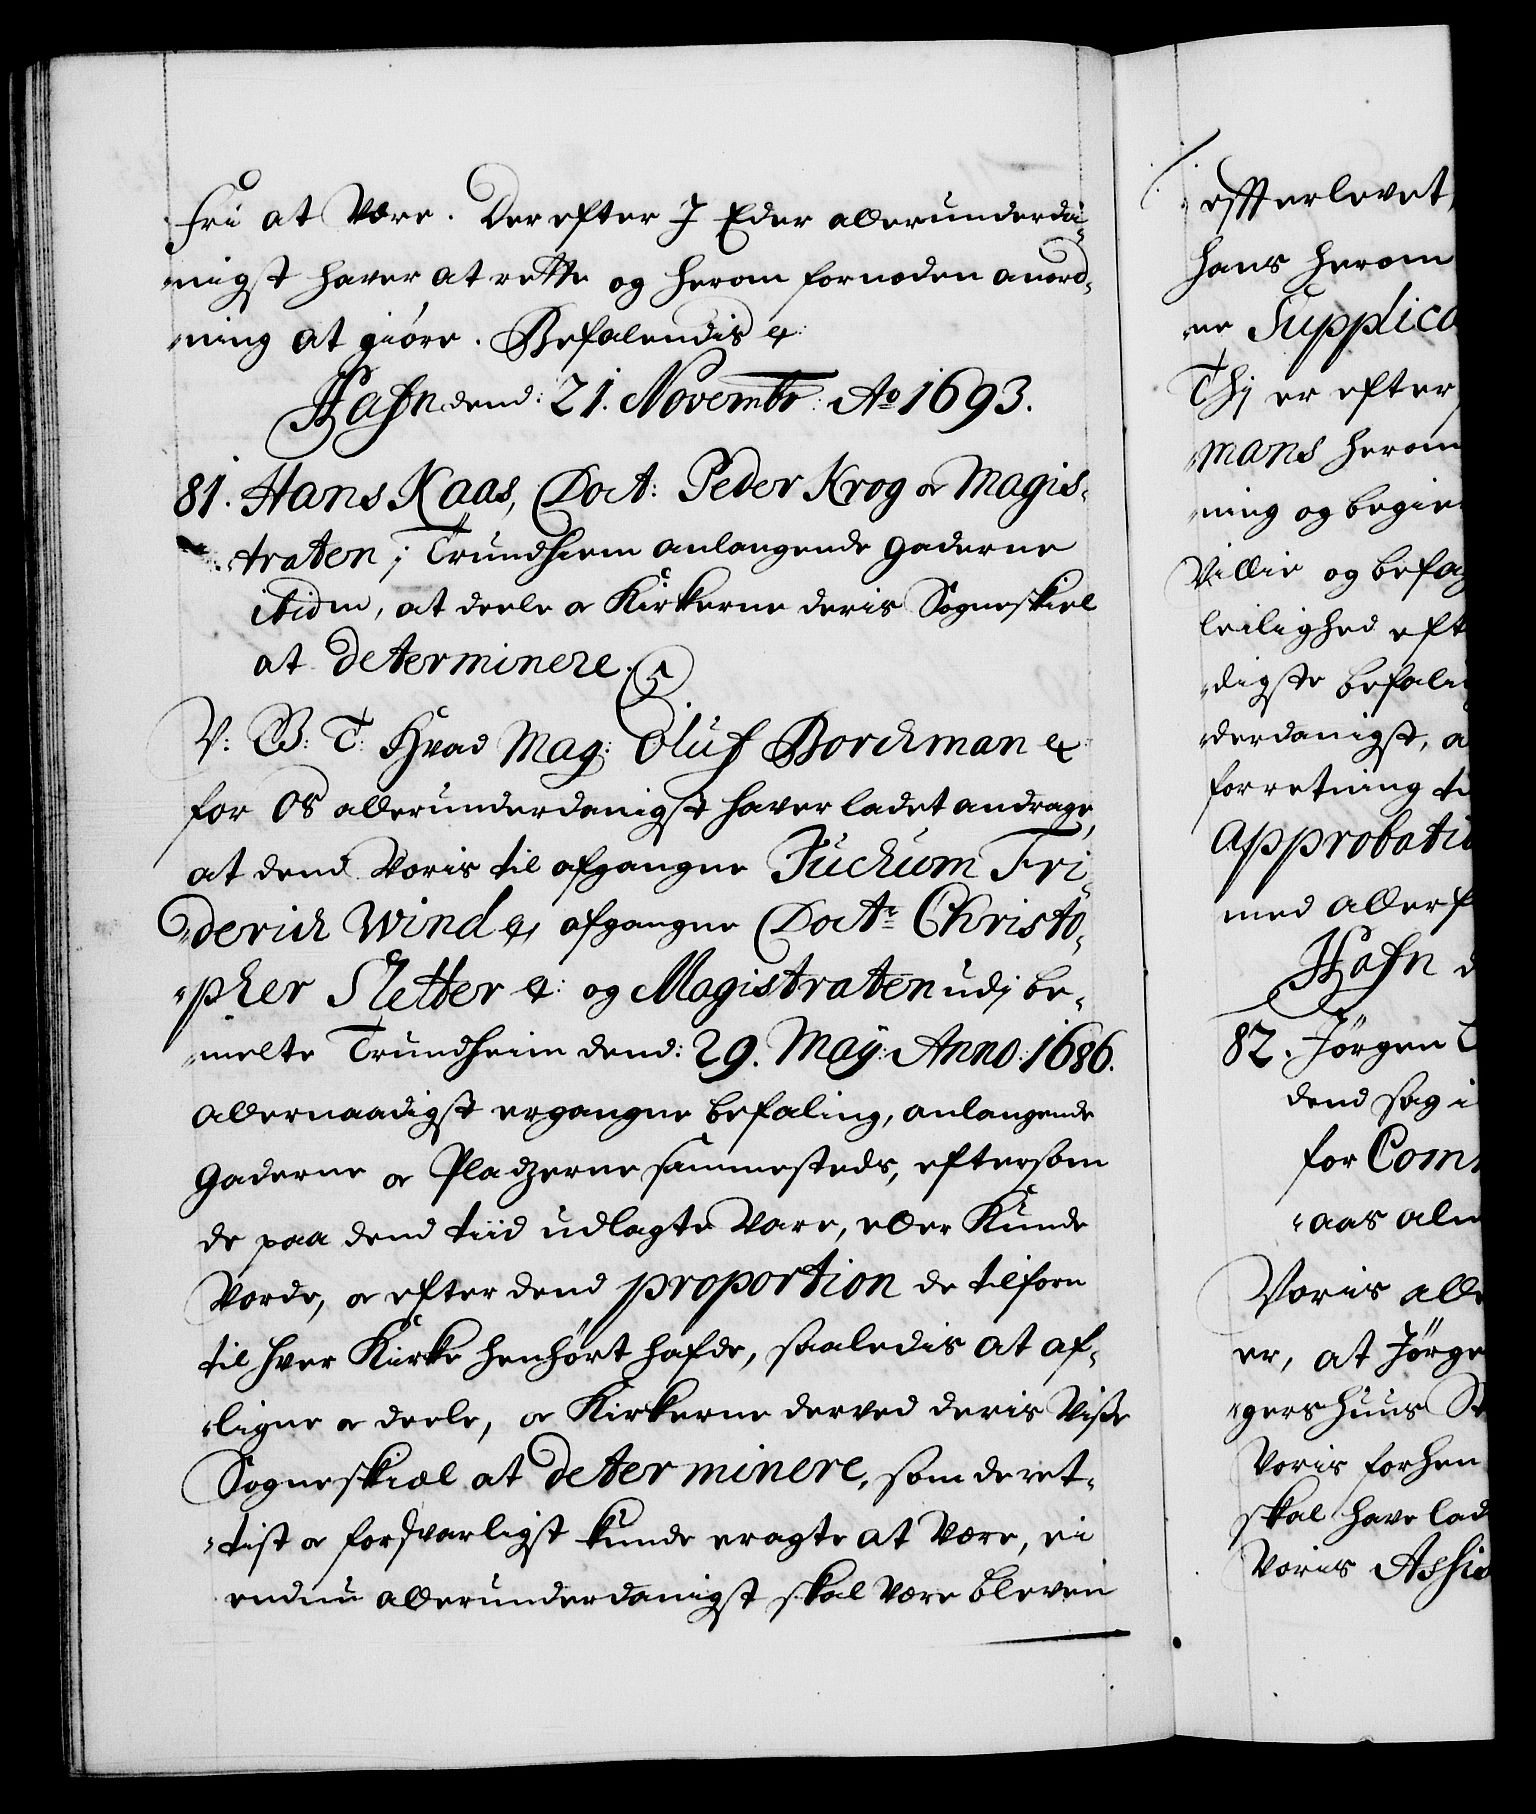 fri at Være. Derefter I Eder allerunderdá-
nigst haver at rette og herom fornøden anord-
ning at giöre. Befalendis &:
Hafn dend: 21. Novembr: Ao 1693.
81. Hans Kaas, Doct: Peder Krog & Magis-
traten i Trundhiem anlangende Gaderne
ibidm, at deele & Kirkerne deris Sogneskiel
at determinere.
V: G: T: Hvad Mag: Oluf Borchman &
for Os allerunderdanigst haver ladet andrage,
at dend Voris til afgangne Juchum Fri-
derich Wind &, afgangne Doctr Christo-
pher Sletter &: og Magistraten udj be-
melte Trundheim dend: 29. Maÿ: Anno: 1686.
allernaadigst ergangne befaling, anlangende
Gaderne & Pladzerne sammesteds, eftersom
de paa dend tiid udlagte Vare, eller Kunde
Vorde, & efter dend proportion de tilforn
til hver Kirke henhört hafde, saaledis at af-
ligne & deele, & Kirkerne derved deris Visse
Sogneskiæl at determinere, som de ret-
tist & forsvarligst kunde eragte at Være, ei
endnu allerunderdanigst skal Være bleven
efterlevet,
hans herom
ne Supplica
Thj er efter
mans herom
ning og begie
Villie og befa
leilighed eft
digste befali
derdanigst, a
forretning ti
approbati
med allerf
Hafn d
82. Jörgen
dend sag i
for Com
aas alm
Voris alle
er, at Jörge
gershuus St
Voris forhen
skal have lad
Voris Assis